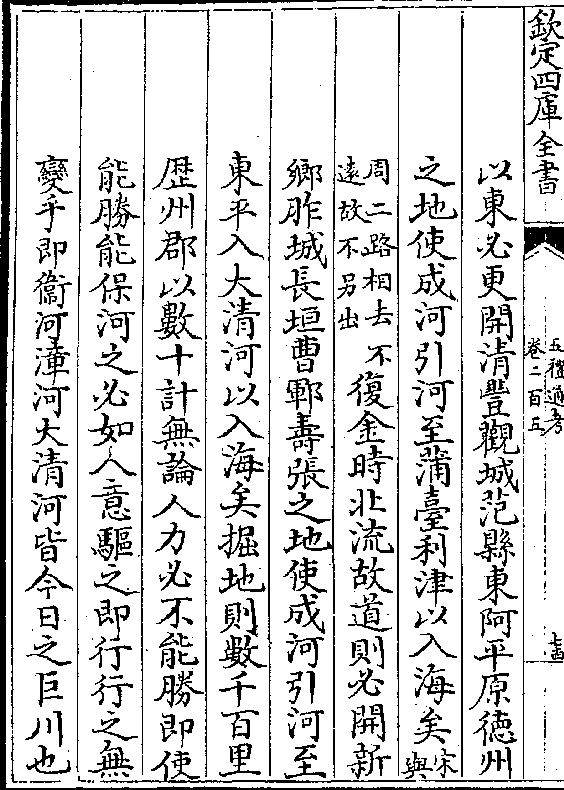 欽定四庫全書
五禮通考
卷二百五
以東必更開清豐觀城范縣東阿平原德州
之地使成河引河至蒲臺利津以入海矣宋與
周二路相去不
遠故不另出
復金時北流故道則必開新
鄉胙城長垣曹鄆壽張之地使成河引河至
東平入大清河以入海矣掘地則數千百里
歴州郡以數十計無論人力必不能勝即使
能勝能保河之必如人意驅之即行行之無
變乎即衞河漳河大清河皆今日之巨川也